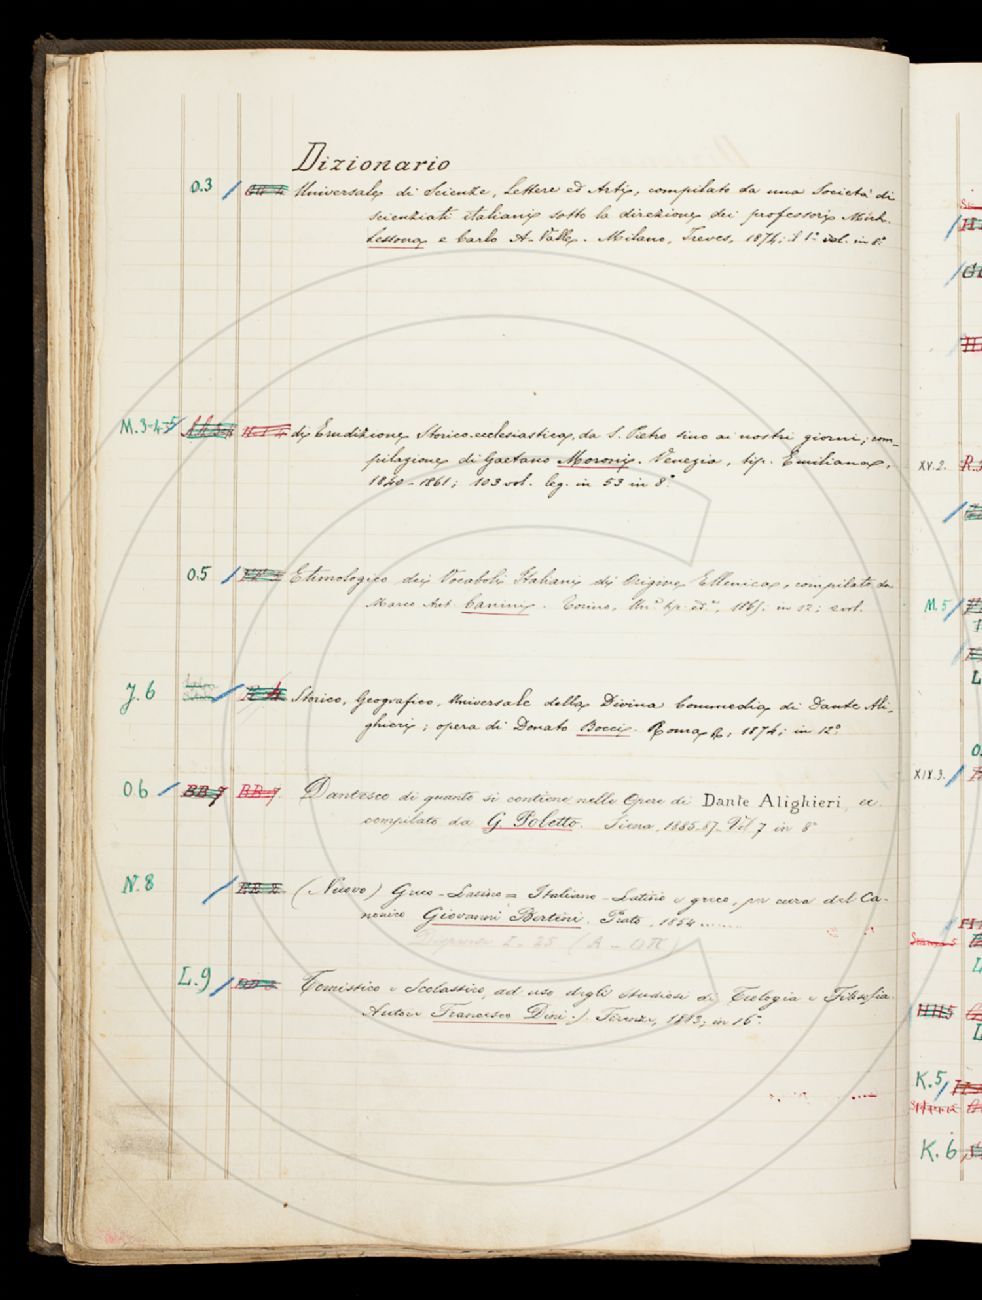 Dizionario
0.3 Universale di Scienze, Lettere ed Arti, compilato da una Società di
scienziati italiani sotto la direzione dei professori Mich.
Lessona e Carlo A. Valle. Milano, Treves, 1874; 1 vol. in 8°
M.3-4-5 di Erudizione Storico-ecclesiastica, da S. Pietro sino ai nostri giorni; com-
pilazione di Gaetano Moroni. Venezia, tip. Emiliana,
1840-1861; 103 vol. leg. in 53 in 8°.
0.5 Etimologico dei Vocaboli Italiani di Origine Ellenica, compilato da
Marco Ant. Canini. Torino, Un. tip. ed., 1865; in 12; 2 vol.
J.6 Storico, Geografico, Universale della Divina Commedia di Dante Ali-
ghieri; opera di Donato Bocci. Roma, 1874; in 12°
06 BB 7 BB 7 Dantesco di quanto si contiene nelle Opere di Dante Alighieri, &
compilato da G. Poletto. Siena, 1885-87. Vol 7 in 8°
N.8 (Nuovo) Greco-Latino = Italiano-Latino e greco, per cura del Ca-
nonico Giovanni Bertini. Prato, 1854
Dispense 1-25 (A-
L.9 Tomistico e Scolastico, ad uso degli studiosi di Teologia e Filosofia
Autore Francesco Dini. Firenze, 1813; in 16°.
XV.2.
M.5
XIX.3.
K.5
K.6